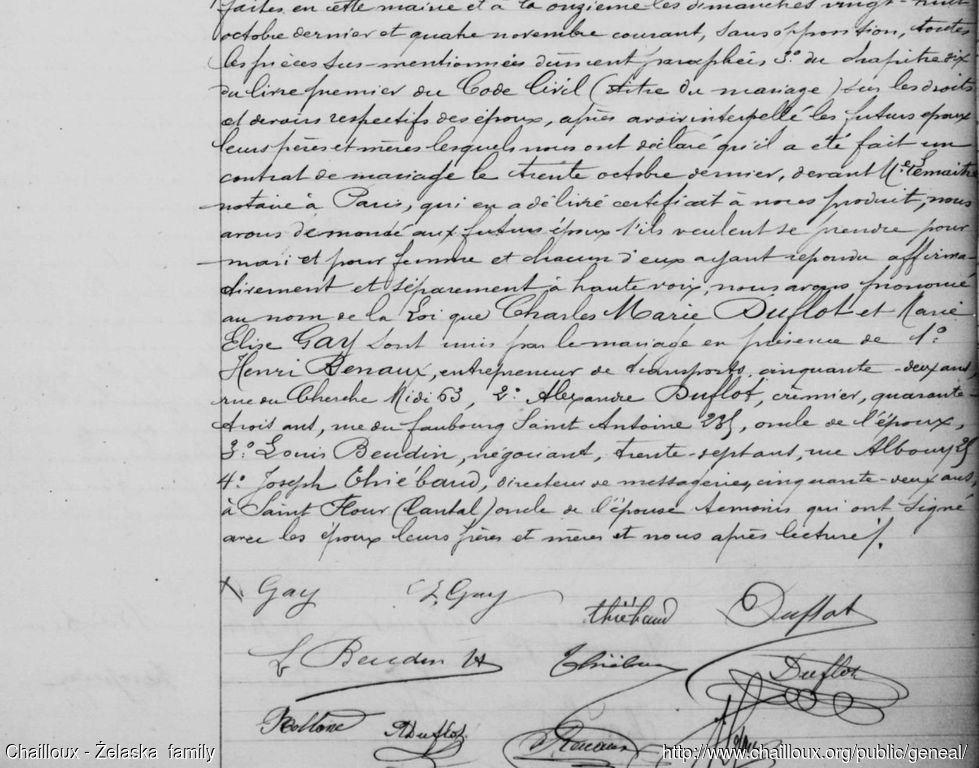 faites en cette mairie et à la onzième les dimanches vingt-huit
octobre dernier et quatre novembre courant, sans opposition, toutes
les pièces sus-mentionnées dûment paraphées 3º du chapitre six
du livre premier du Code Civil (titre du mariage) sur les droits
et devoirs respectifs des époux, après avoir interpellé les futurs époux
leurs pères et mères lesquels nous ont déclaré qu'il a été fait un
contrat de mariage le trente octobre dernier, devant Me Lemaitre
notaire à Paris, qui en a délivré certificat à nous produit, nous
avons demandé aux futurs époux s'ils veulent se prendre pour
mari et pour femme et chacun d'eux ayant répondu affirma-
tivement et séparément à haute voix, nous avons prononcé
au nom de la Loi que Charles Marie Duflot et Marie
Elise Gay sont unis par le mariage en présence de 1º
Henri Benaux, entrepreneur de transports, cinquante-deux ans,
rue du Cherche Midi 63, 2º Alexandre Duflot, crémier, quarante-
trois ans, rue du faubourg Saint Antoine 235, oncle de l'époux,
3º Louis Beudin, négociant, trente-sept ans, rue Albouy 25
4º Joseph Thiébaud, directeur de messageries, cinquante-deux ans,
à Saint Flour (Cantal) oncle de l'épouse témoins qui ont signé
avec les époux leurs pères et mères et nous après lecture /.
Gay E. Gay Thiébaud Duflot
L Beudin Duflot
A Duflot
Chailloux - Żelaska family http://www.chailloux.org/public/geneal/